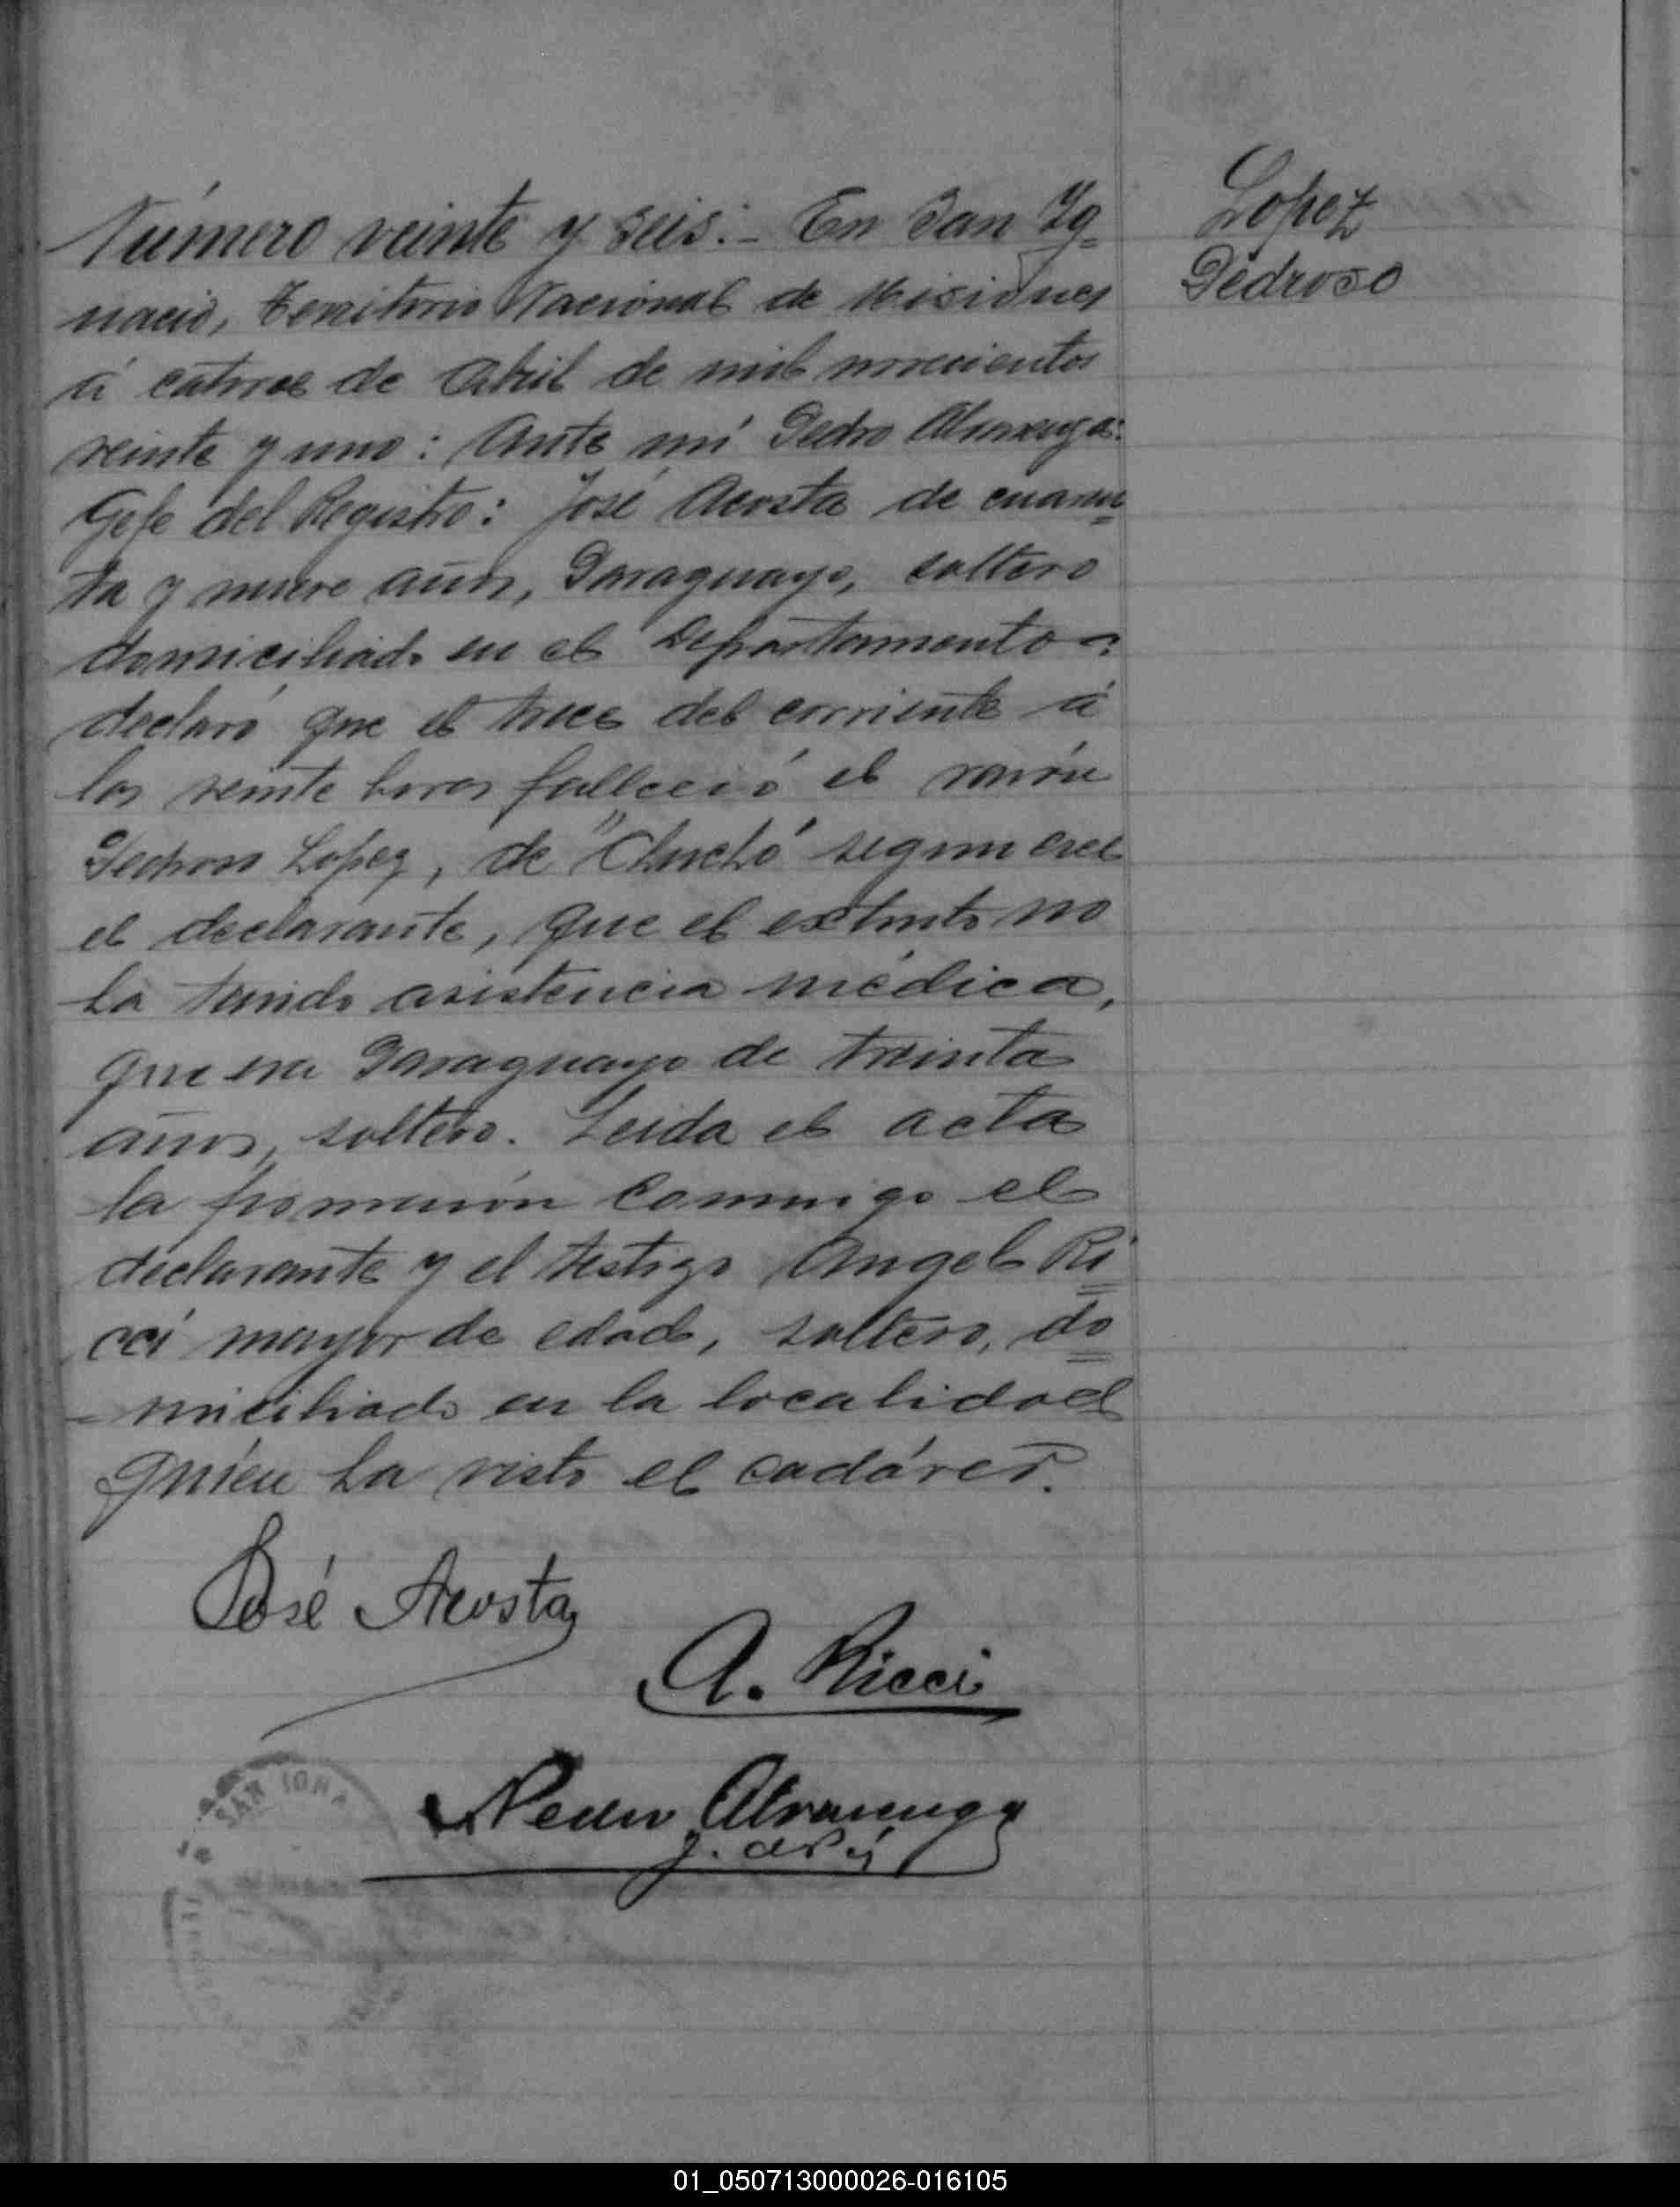 Número veinte y seis:- En San Yg=
nacio, Territorio Nacional de Misiones
á catorce de Abril de mil novecientos
veinte y uno: Ante mí Pedro Alvarenga:
Gefe del Registro: José Acosta de cuaren=
ta y nueve años, Paraguayo, soltero
domiciliado en el Departamento
declaró que el trece del corriente á
las veinte horas falleció el varón
Pedroso Lopez, de "Chuchó" segun cree
el declarante, que el extinto no
ha tenido asistencia médica,
que era Paraguayo de treinta
años, soltero. Leida el acta
la firmaron conmigo el
declarante y el testigo Angel Ri=
cci mayor de edad, soltero, do=
=miciliado en la localidad
quién ha visto el cadáver.
Lopez
Pedroso
José Acosta
A. Ricci
Pedro Alvarenga
SAN IGNA
01_050713000026-016105